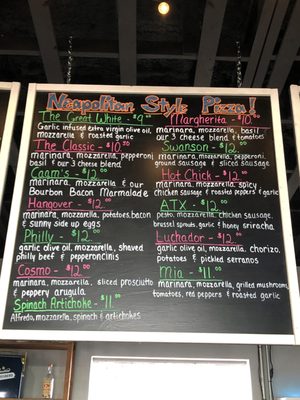 Neapolitan Style Pizza!
The Great White - $9.00
Garlic infused extra virgin olive oil,
mozzarella & roasted garlic
The Classic - 10.00
marinara, mozzarella, pepperoni
& our 3 cheese blend
Cagm's - $12.00
marinara, mozzarella & our
Bourbon Bacon Marmalade
Hangover - $12.00
marinara, mozzarella, potatoes, bacon
& sunny side up eggs
Philly - $12.00
garlic olive oil, mozzarella, shaved
philly beef & pepperoncinis
Cosmo - $12.00
marinara, mozzarella, sliced prosciutto
& peppery arugula
Spinach Artichoke - $11.00
Alfredo, mozzarella, spinach & artichokes
Margherita - $10.00
marinara, mozzarella, basil
our 3 cheese blend & tomatoes
Swanson - $12.00
marinara, mozzarella, pepperoni,
ground sausage & sliced sausage
Hot Chick - $12.00
marinara, mozzarella, spicy
chicken sausage & roasted peppers & garlic
ATX - $12.00
pesto, mozzarella, chicken sausage,
brussel sprouts, garlic & honey sriracha
Luchador - $12.00
garlic olive oil, mozzarella, chorizo,
potatoes & pickled serranos
Mia - $11.00
marinara, mozzarella, grilled mushrooms,
tomatoes, red peppers & roasted garlic